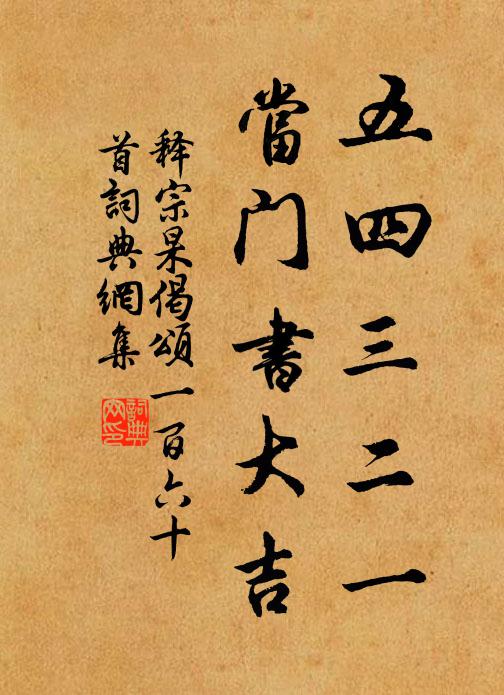 五四三二一
當門書大吉
释宗杲偈頌一百六十
首詞典網集
詞典網印